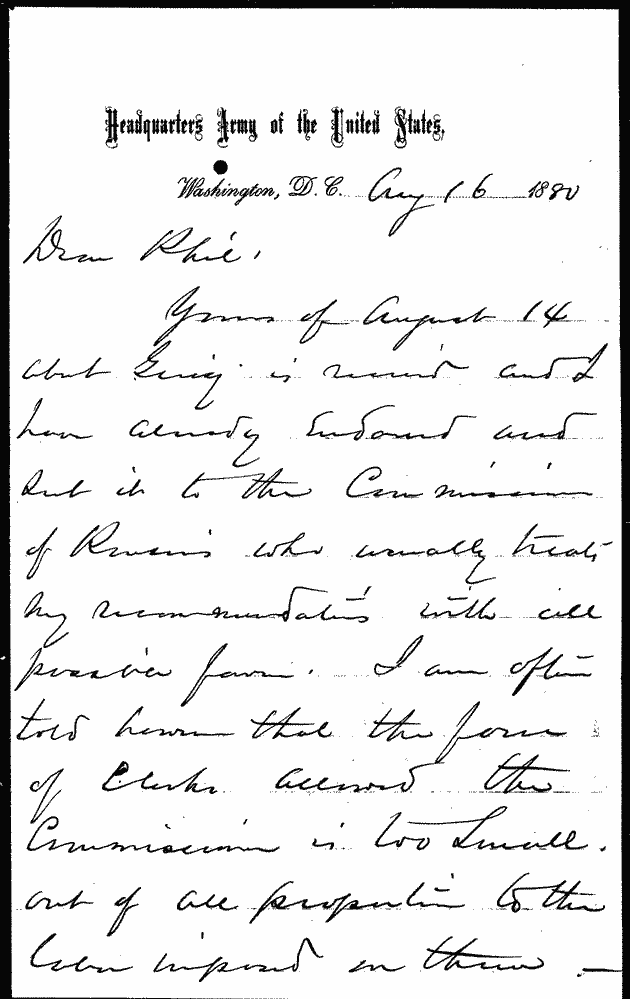 Headquarters Army of the United States,
Washington, D.C. Aug 16 1880
Dear Phil,
Yours of August 14
about is received and I
have already Endorsed and
sent it to the Commissioner
of Pensions who usually treats
my recommendations with all
possible favor. I am often
told however that the force
of Clerks allowed the
Commissioner is too small.
out of all proportion to the
labor imposed on them —